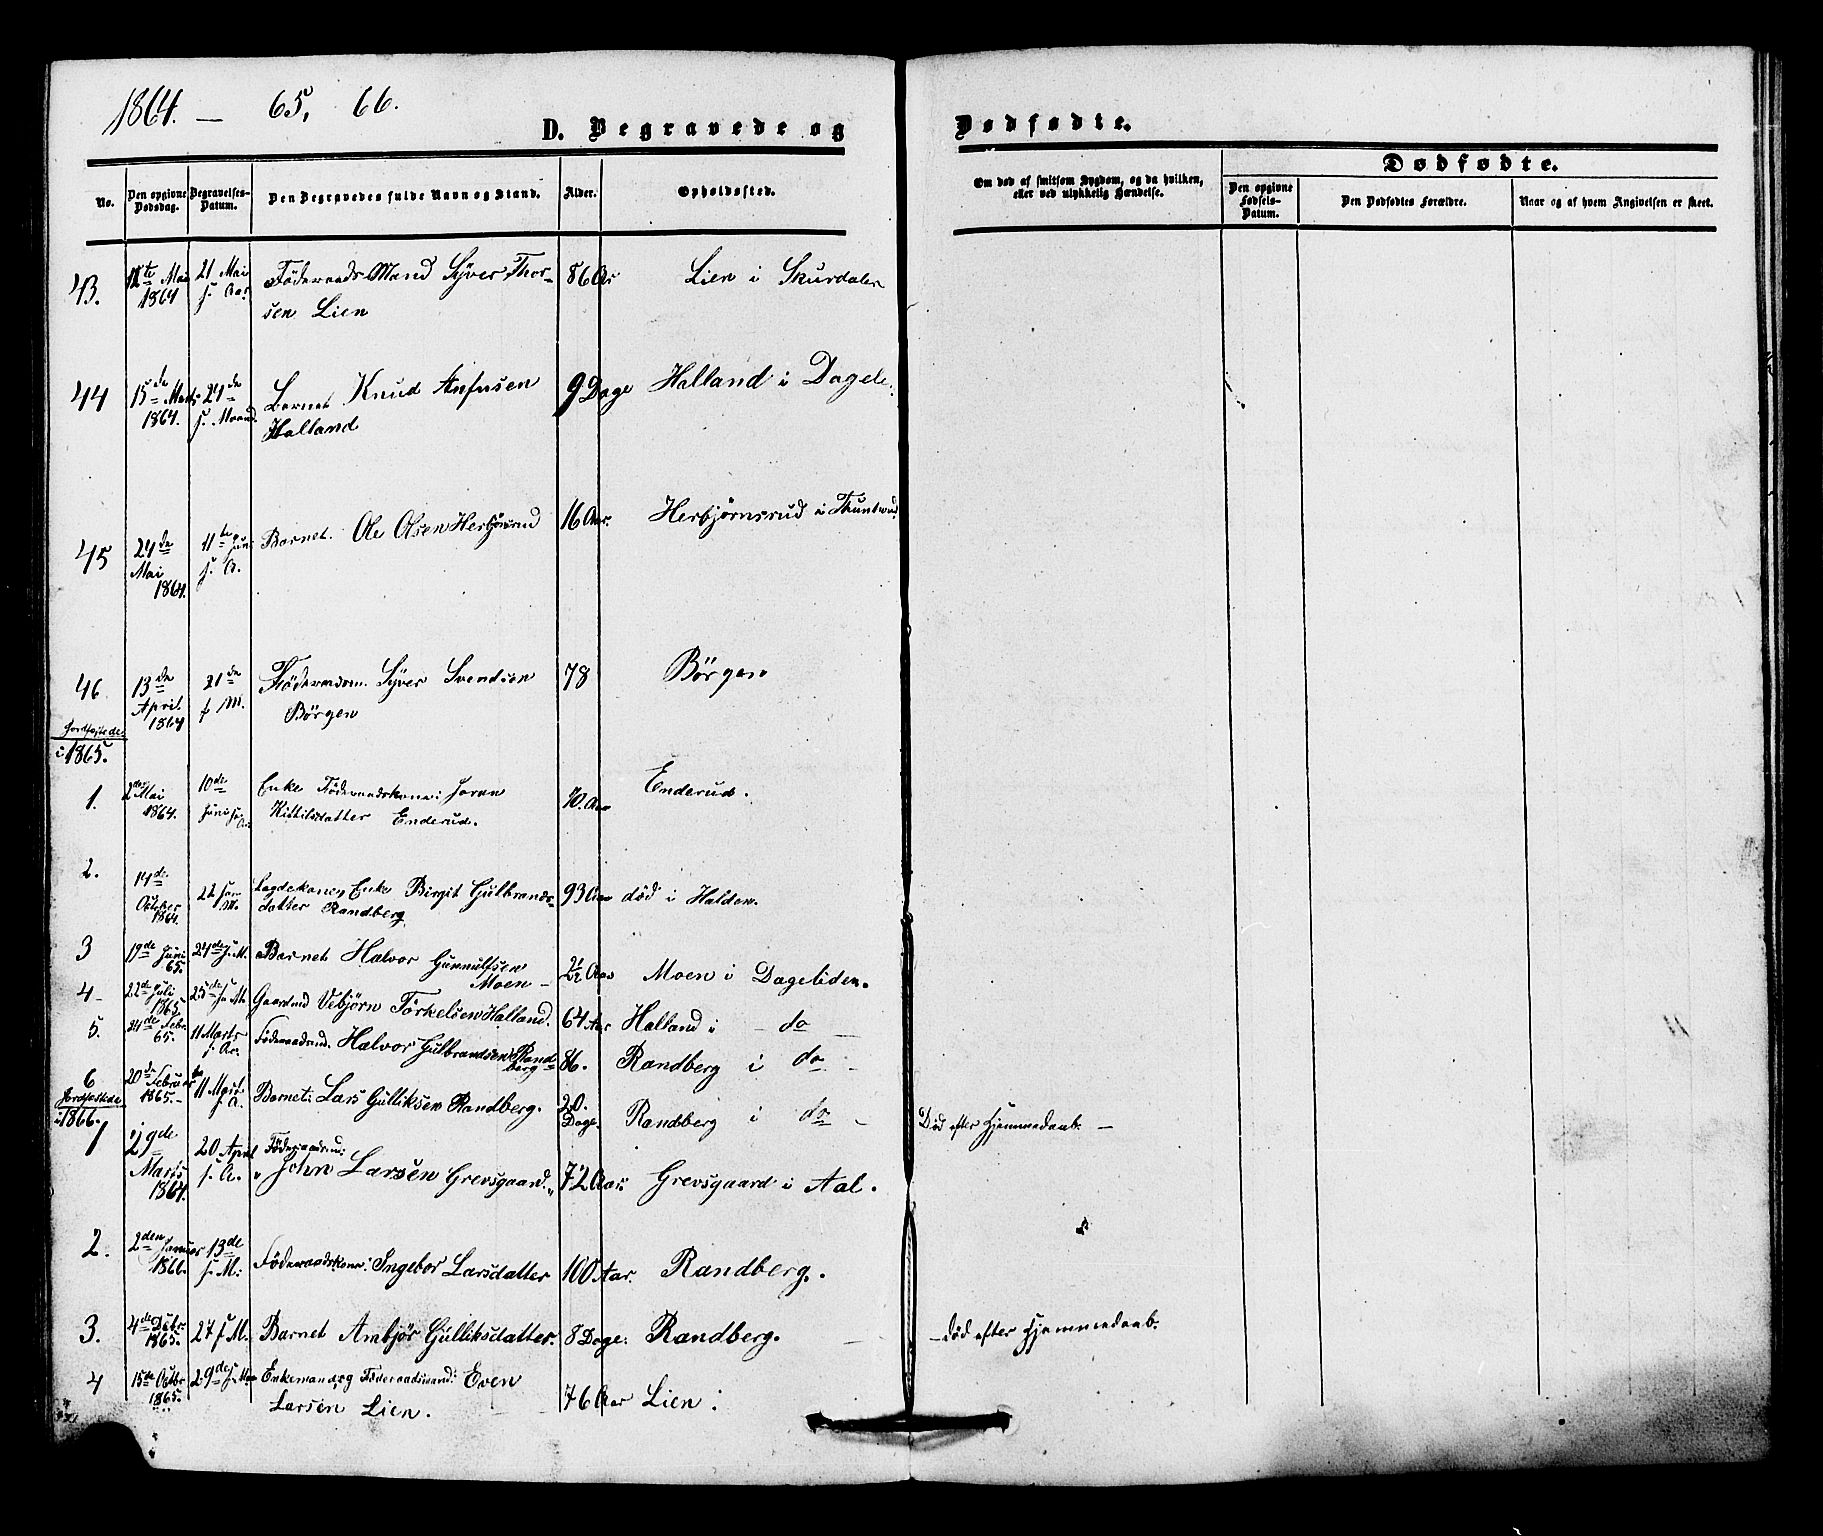 1864. — 65, 66.
D. Begravede og
Dødfødte.
No.
Den opgivne Dødsdag.
Begravelses-Datum.
Den Begravedes fulde Navn og Stand.
Alder.
Opholdssted.
Om død af smitsom Sygdom, og da hvilken, eller ved ulykkelig Hændelse.
Dødfødte.
Den opgivne Fødsels-Datum.
Den Dødfødtes Forældre.
Naar og af hvem Angivelsen er skeet.
43. Mai 1864 21 Mai s. Aar Föderaads Mand Syver Thor- 86 Aar Lien i Skurdalen
sen Lien
44 15de Marts 1864. 24de s. Maaned. Barnet Knud 9 Dage Halland i Dagali
Halland
45 24de Mai 1864. 11te Juni s. A. Barnet. Ole Olsen Herbjörnsrud 16 Aar. Herbjørnsrud i
46 13de April 1864 21de s. M. Syver Svendsen 78 Börgen
Börgen
Jordfæstede i 1865.
1. 2den Mai 1864. 10de Juni s. Aar Enke Föderaadskone: Joran 70. Aar Enderud.
Kittilsdatter Enderud.
2. 14de October 1864. 22 s. M. Enke Birgit Gulbrands- 93 Aar död i Halden.
datter Randberg
3 19de Juni 65. 24de s. M. Barnet Halvor Gunnulfsen Aar Moen i Dageliden.
Moen
4 22de Juli 1865 25de s. M. Gaardmd Vebjörn Törkelsen Halland. 64 Aar Halland i — do —
5. 24de Febr. 65. 11 Marts s. Ar. Föderaadsmd. Halvor Gulbrandsen Randberg 86. Randberg i do —
6 20de Februar 1865. 11 Marts s. A. Barnet: Lars Gulliksen Randberg. 20. Dage. Randberg i do — Död efter Hjemmedaab. —
Jordfæstede i 1866.
1 29de Marts 1864. 20 April s. A. Föderaadsmd: John Larsen Grevsgaard. 72 Aar. Grevsgaard i Aal.
2. 2den Januar 1866. 13de s. M. Föderaadskone: Ingebor Larsdatter 100 Aar. Randberg.
3. 4de Decbr. 1865. 27 s. M. Barnet Ambjör Gulliksdatter. 8 Dage. Randberg. — död efter Hjemmedaab.
4 15de Octbr 1865. 29de s. M. Enkemand og Föderaadsmand: Even 76 Aar Lien.
Larsen Lien.